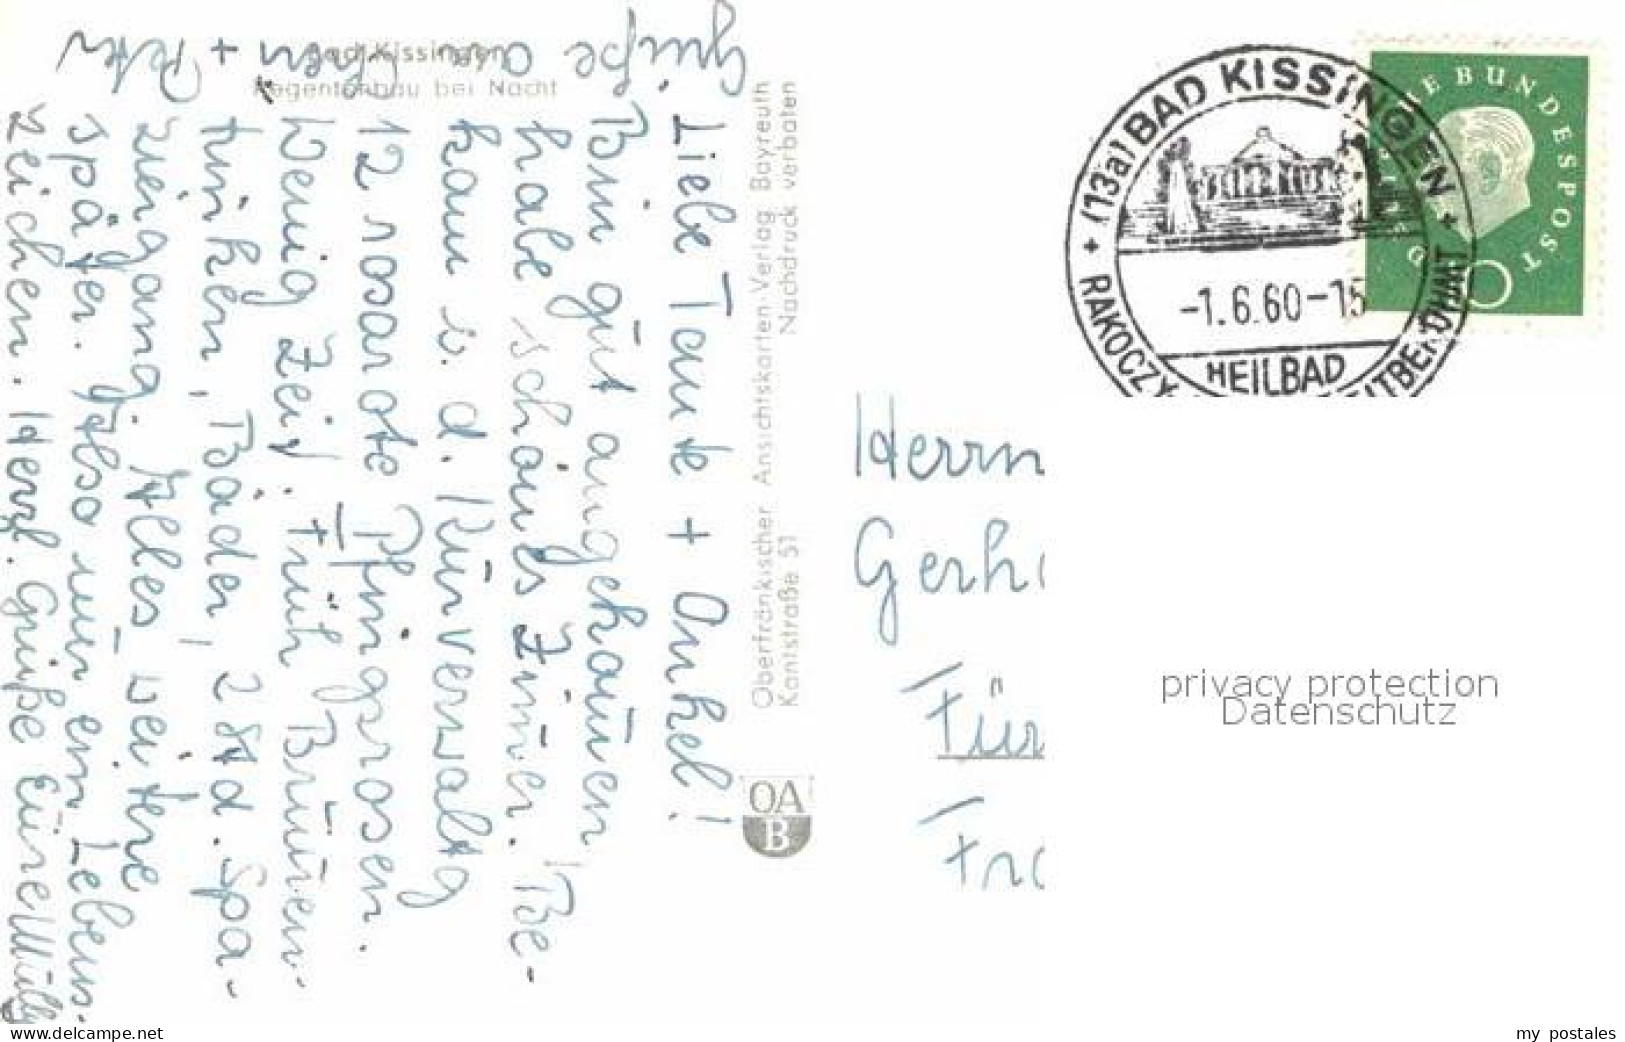 Bad Kissingen
Regentenbau bei Nacht
Liebe Tante + Onkel!
Bin gut angekommen
habe schönes Zimmer. Be-
kam v. d. Kurverwaltg
12 rosarote Pfingsrosen.
Wenig Zeit. Früh Brunnen-
trinken, Bäder, 2 Std. Spa-
ziergang. Alles weitere
später. Also nur ein Lebens-
zeichen. Herzl. Grüße Eure
Grüße an +  Peter
Oberfränkischer Ansichtskarten-Verlag Bayreuth
Kantstraße 51 Nachdruck verboten
OA
B
(13a) BAD KISSINGEN
-1.6.60-15
HEILBAD
RAKOCZY
DEUTSCHE BUNDESPOST
Herrn
Gerh
Für
Fra
privacy protection
Datenschutz
www.delcampe.net
my postales